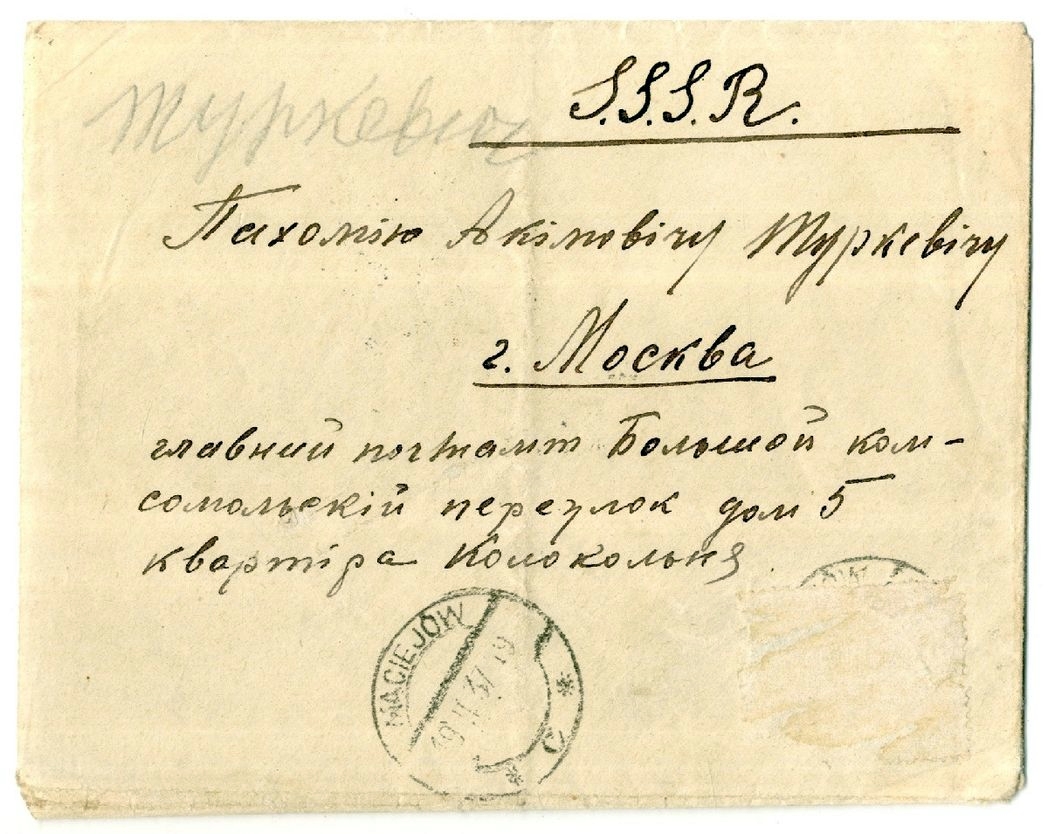 Туркевич
S.S.S.R.
Пахомію Акімовічу Туркевічу
г. Москва
главний почтамт Большой ком-
сомольскій переулок дом 5
квартіра Колокольня
MACIEJÓW
19 II 37 19
C